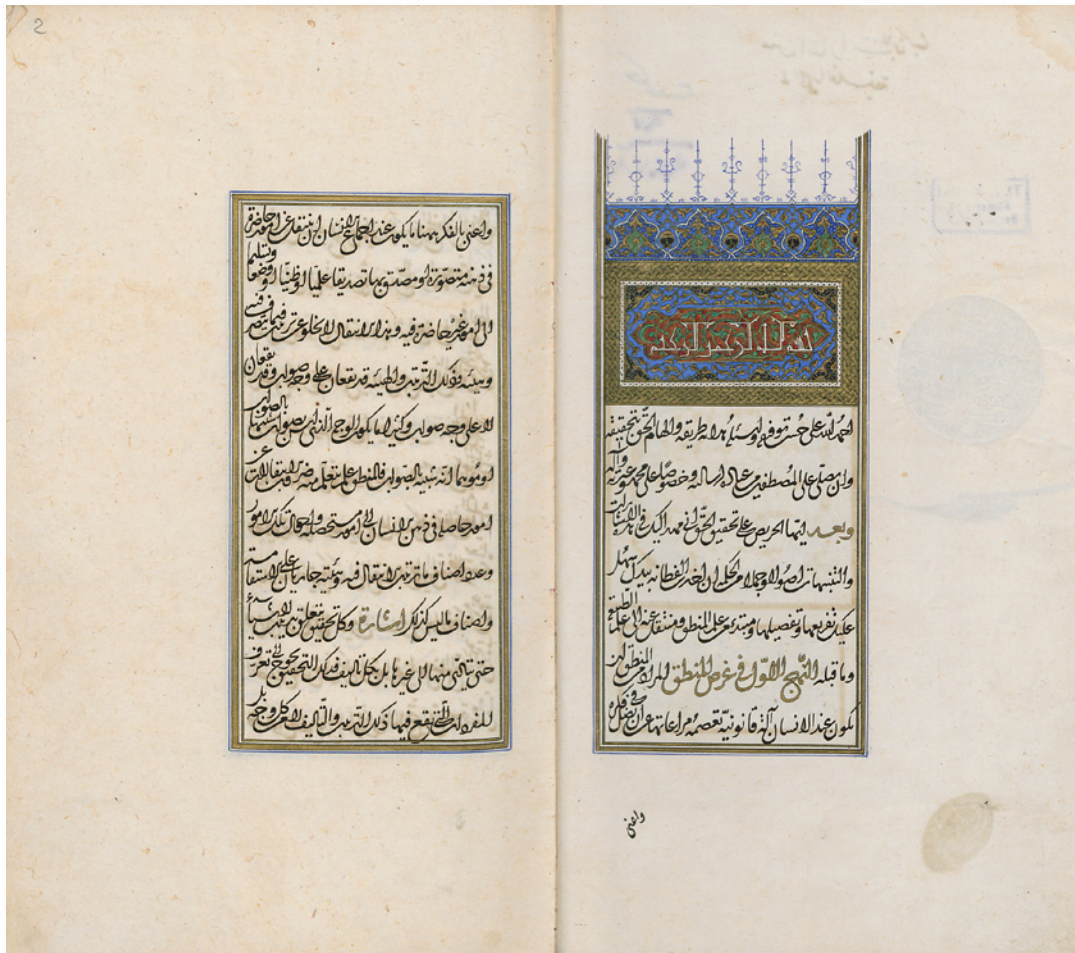 بسم الله الرحمن الرحيم
احمد الله على حسن توفيقه واسأله هداية طريقه والهام الحق بتحقيقه
وان يصلي على المصطفين من عباده لرسالته وخصوصًا على محمد وعترته وآله
وبعد ايها الحريص على تحقيق الحق اني ممهد اليك في هذه الاشارات
والتنبيهات اصولا وجملا من الحكمة ان اخذت الفطانة بيدك سهل
عليك تفريعها وتفصيلها ومبتدئ من علم المنطق ومنتقل عنه الى علم الطبيعة
وما قبله النهج الاول في غرض المنطق المراد من المنطق ان
تكون عند الانسان آلة قانونية تعصمه مراعاتها عن ان يضل في فكره
واعنى
2
واعنى بالفكر ههنا ما يكون عند اجماع الانسان ان ينتقل عن امور حاضرة
في ذهنه متصورة او مصدق بها تصديقا علميا او ظنيا او وضعا وتسليما
الى امور غير حاضرة فيه وهذا الانتقال لا يخلو عن ترتيب فيما يتصرف فيه
وهيئة وذلك الترتيب والهيئة قد يقعان على وجه صواب وقد يقعان
لا على وجه صواب وكثيرا ما يكون الوجه الذي ليس بصواب شبيها بالصواب
او موهما انه شبيه بالصواب فالمنطق علم يتعلم منه ضروب الانتقالات عن
امور حاصلة في ذهن الانسان الى امور مستحصلة واحوال تلك الامور
وعدد اصناف ما ترتيب الانتقال فيه وهيئته جاريان على الاستقامة
واصناف ما ليس كذلك اشارة وكل تحقيق متعلق بترتيب الاشياء
حتى يتأدى منها الى غيرها بل بكل تأليف فذلك التحقيق يحوج الى تعرف
المفردات التي يقع فيها ذلك الترتيب والتأليف لا من كل وجه بل